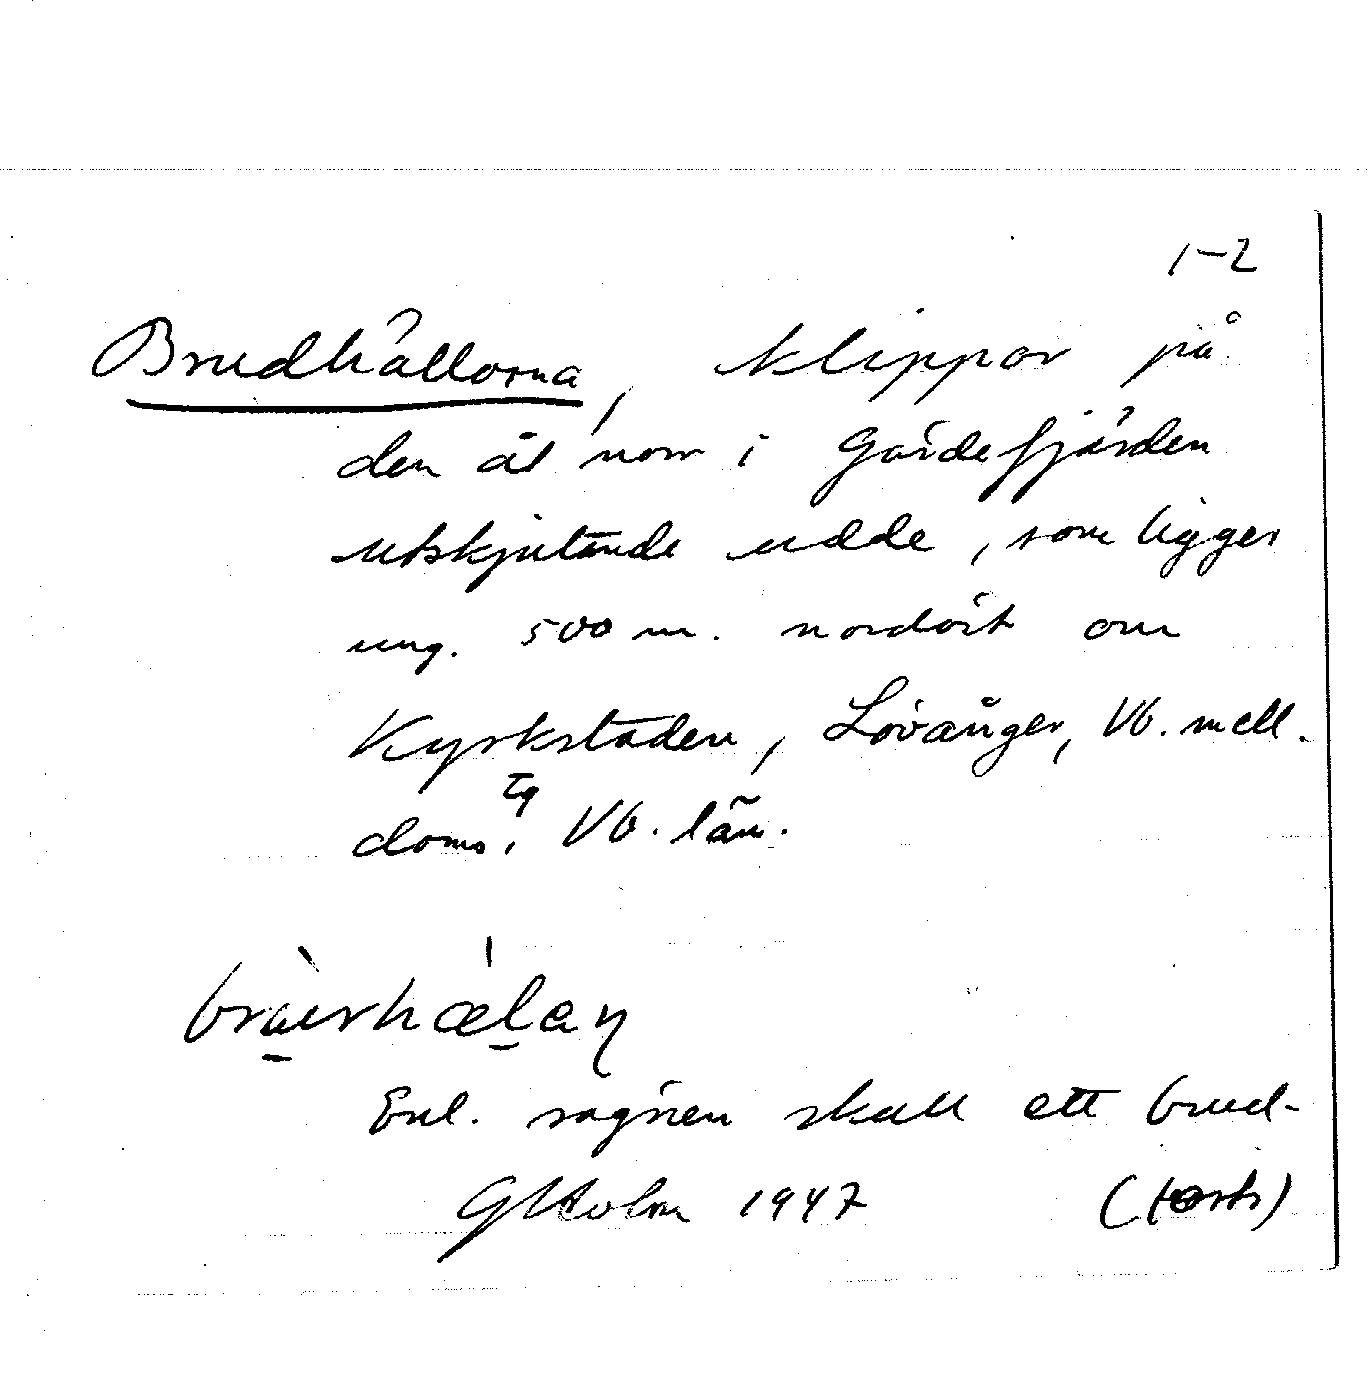 1-2
Brudhällorna, klippor på
den åt norr i Gärdefjärden
utskjutande udde, som ligger
ung. 500 m. nordöst om
Kyrkstaden, Lövånger, Vb. mell.
doms. tg Vb. län.
Enl. sägnen skall ett brud-
GHolm 1947 (forts)